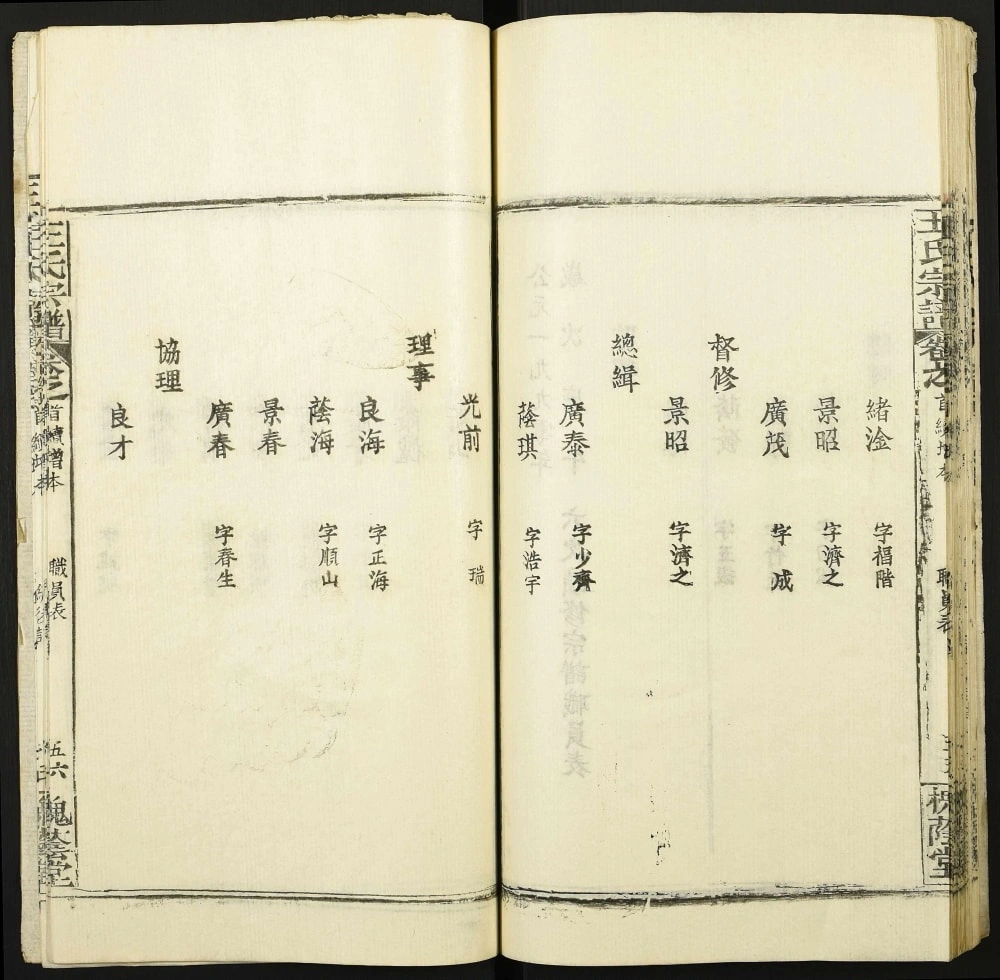 王氏宗譜 卷之首 續增本 職員表 槐蔭堂
緒淦 字福階
景昭 字濟之
廣茂 字成
督修
景昭 字濟之
總緝
廣泰 字少齊
蔭琪 字浩宇
光前 字瑞
理事
良海 字正海
蔭海 字順山
景春
廣春 字春生
協理
良才
王氏宗譜 卷之首 續增本 職員表 五六 槐蔭堂